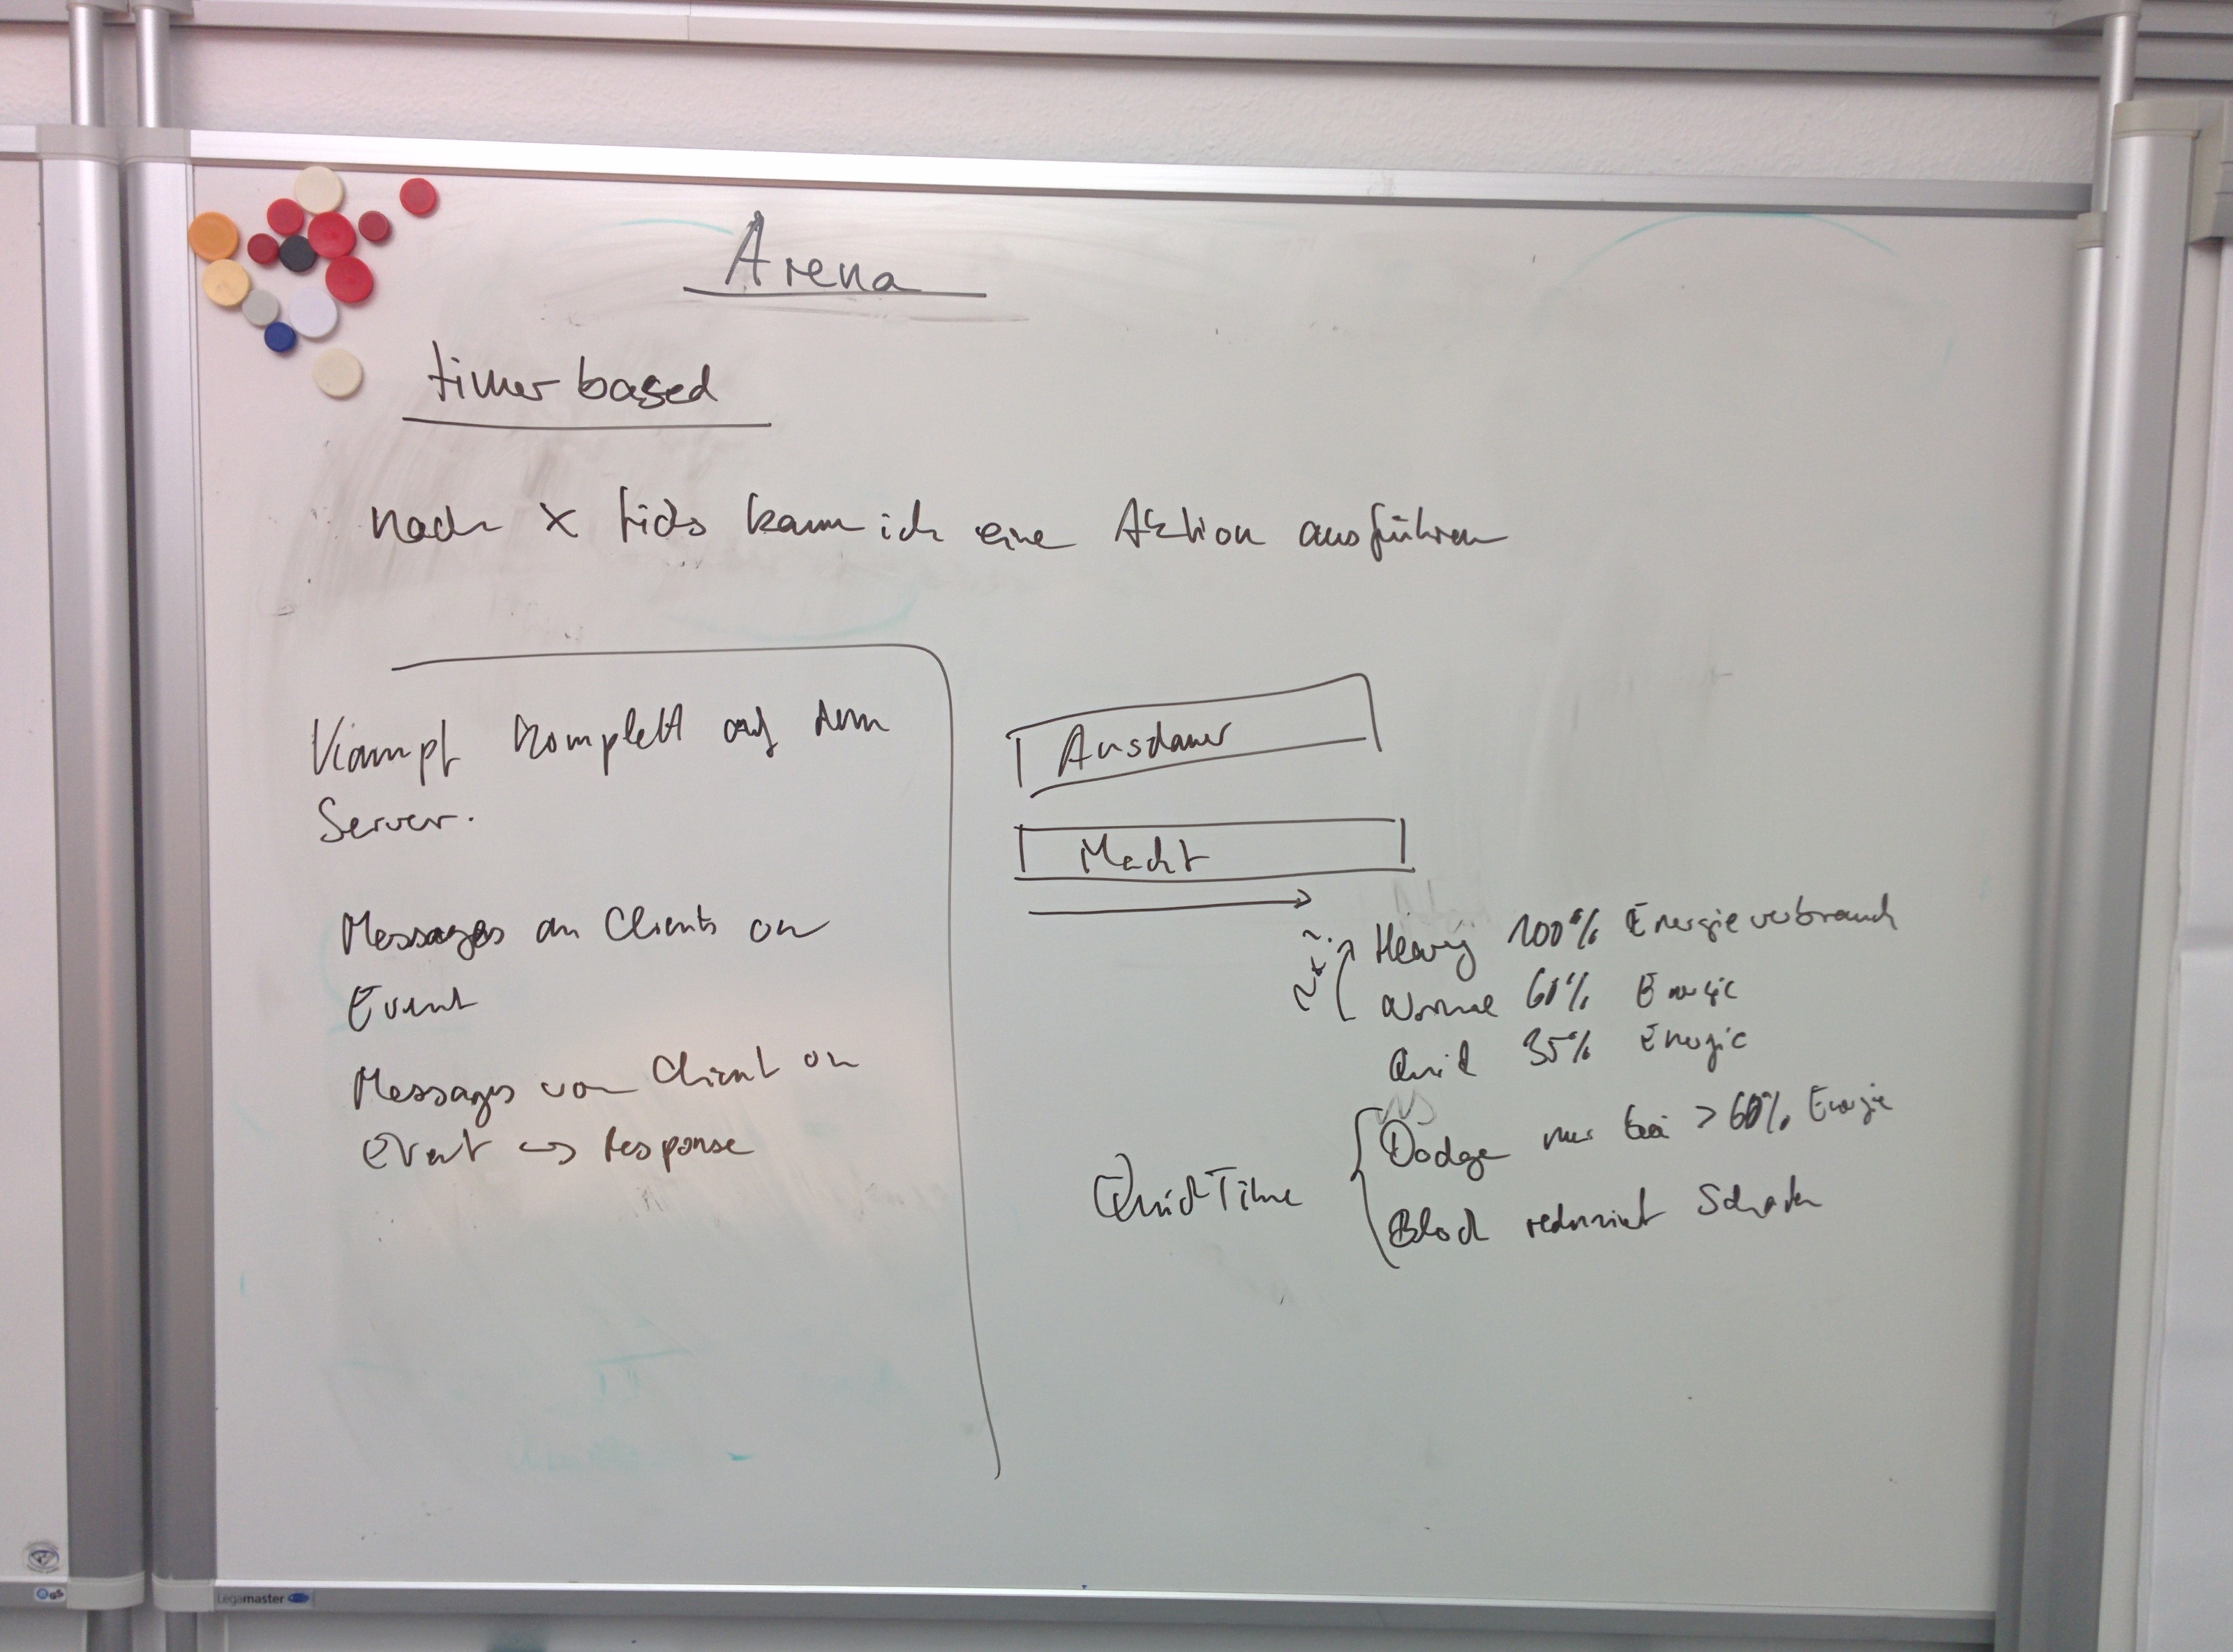 Arena
timer based
nach x ticks kann ich eine Aktion ausführen
Kampf komplett auf dem
Server.
Messages an Clients on
Event
Messages von Client on
Event → Response
Ausdauer
Macht
Heavy 100% Energieverbrauch
Normal 60% Energie
Quick 35% Energie
QuickTime
Dodge nur bei > 60% Energie
Block reduziert Schaden
Legamaster